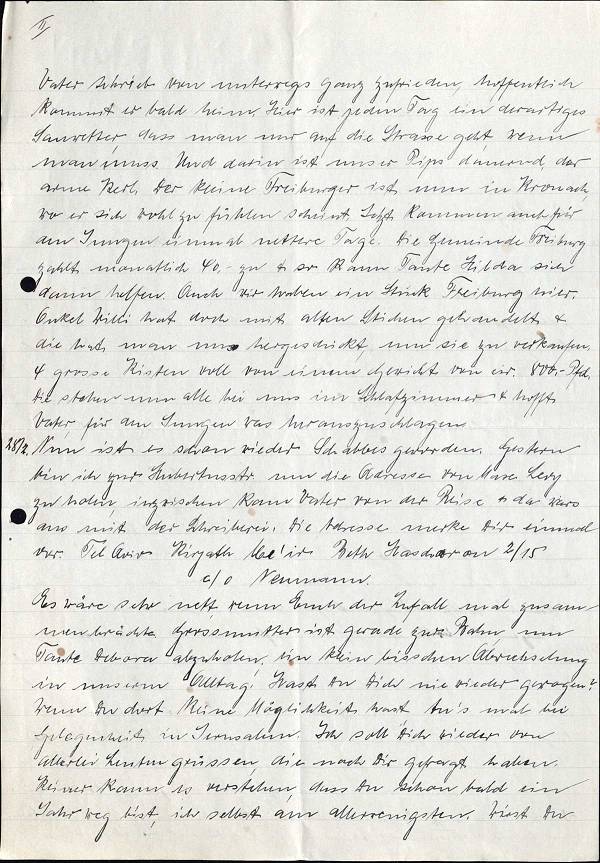 II
Vater schrieb von unterwegs ganz zufrieden, hoffentlich
kommt er bald heim. Hier ist jeden Tag ein derartiges
Sauwetter, dass man nur auf die Strasse geht wenn
man muss. Und darin ist unser Pips dauernd der
arme Kerl. Der kleine Freiburger ist nun in Kronach,
wo er sich wohl zu fühlen scheint. Jetzt kommen auch für
den Jungen einmal nettere Tage. Die Gemeinde Freiburg
zahlt monatlich 40,- zu & so kann Tante Hilda sich
dann helfen. Auch wir haben ein Stück Freiburg hier.
Onkel Willi hat doch mit alten Stichen gehandelt &
die hat man uns hergeschickt um sie zu verkaufen.
4 grosse Kisten voll von einem Gewicht von cir. 800,- Pfd.
Die stehen nun alle bei uns im Schlafzimmer & hofft
Vater, für den Jungen was herauszuschlagen.
28/2. Nun ist es schon wieder Schabbes geworden. Gestern
bin ich zur Hubertusstr. um die Adresse von Marx Levy
zu holen, inzwischen kam Vater von der Reise & da wars
aus mit der Schreiberei. Die Adresse merke Dir einmal
vor. Tel Aviv Kirjath Me'ir Beth Hascharon 2/15
c/o Neumann.
Es wäre sehr nett wenn Euch der Zufall mal zusam-
menbrächte. Grossmutter ist gerade zur Bahn um
Tante Debora abzuholen, ein klein bisschen Abwechselung
in unserm Alltag! Hast Du Dich nie wieder gewogen?
Wenn Du dort keine Möglichkeit hast tu's mal bei
Gelegenheit in Jerusalem. Ich soll Dich wieder von
allerlei Leuten grüssen, die nach Dir gefragt haben.
Keiner kann es verstehen, dass Du schon bald ein
Jahr weg bist, ich selbst am allerwenigsten. Wirst Du